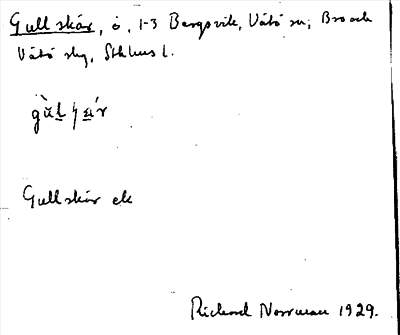 Gullskär, ö, 1-3 Bergsvik, Vätö sn, Bro och
Vätö skg, Sthlms l.
Gullskär ek
Richard Norrman 1929.